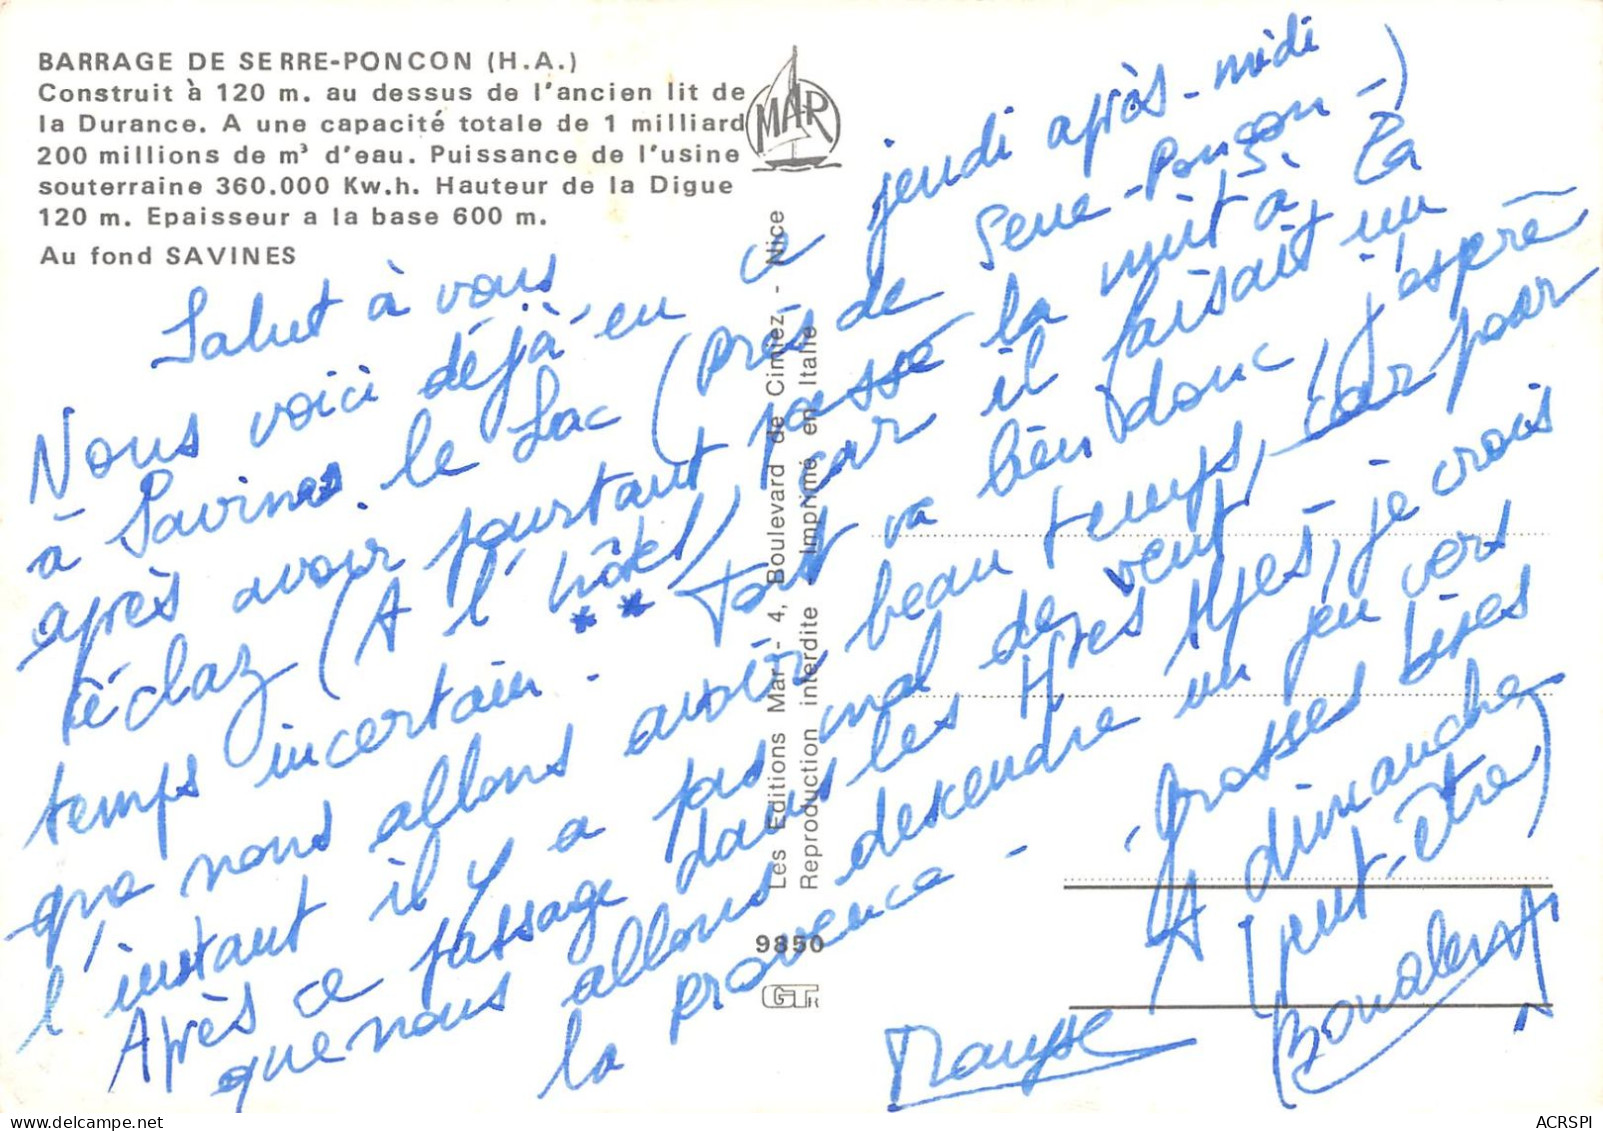 BARRAGE DE SERRE-PONCON (H.A.)
Construit à 120 m. au dessus de l'ancien lit de
la Durance. A une capacité totale de 1 milliard
200 millions de m³ d'eau. Puissance de l'usine
souterraine 360.000 Kw.h. Hauteur de la Digue
120 m. Epaisseur a la base 600 m.
Au fond SAVINES
MAR
Les Editions Mar - 4, Boulevard de Cimiez - Nice
Reproduction interdite Imprimé en Italie
9850
GT
Salut à vous
Nous voici déjà en ce jeudi après-midi
à Savines le Lac (près de Serre-Ponçon-)
après avoir pourtant passé la nuit à La
(A l'hôtel) car il faisait un
** temps incertain. Tout va bien donc, j'espère
que nous allons avoir beau temps, car pour
l'instant il y a pas mal de vent.
Après ce passage dans les Htes Alpes, je crois
que nous allons descendre un peu vers
la provence - Grosses bises
A dimanche
(peut-être)